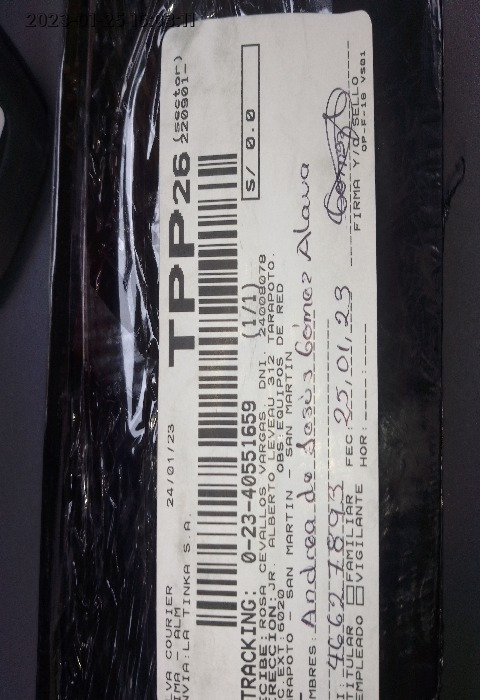 2023-01-25
LVA COURIER 24/01/23
MA - ALM
NVIA:LA TINKA S.A.
TPP26 (sector)
220901-
TRACKING: 0-23-40551659 (1/1)
S/ 0.0
CIBE:ROSA CEVALLOS VARGAS. DNI. 24008078
RECCION:JR. ALBERTO LEVEAU 312 TARAPOTO.
C. EXT:6020 OBS:EQUIPOS DE RED
RAPOTO - SAN MARTIN - SAN MARTIN
MBRES: Andrea de Jesús Gómez Alava
46627893 FEC: 25,01,23
ITULAR FAMILIAR HOR:
MPLEADO VIGILANTE
FIRMA Y/O SELLO
OP-F-18 VS01